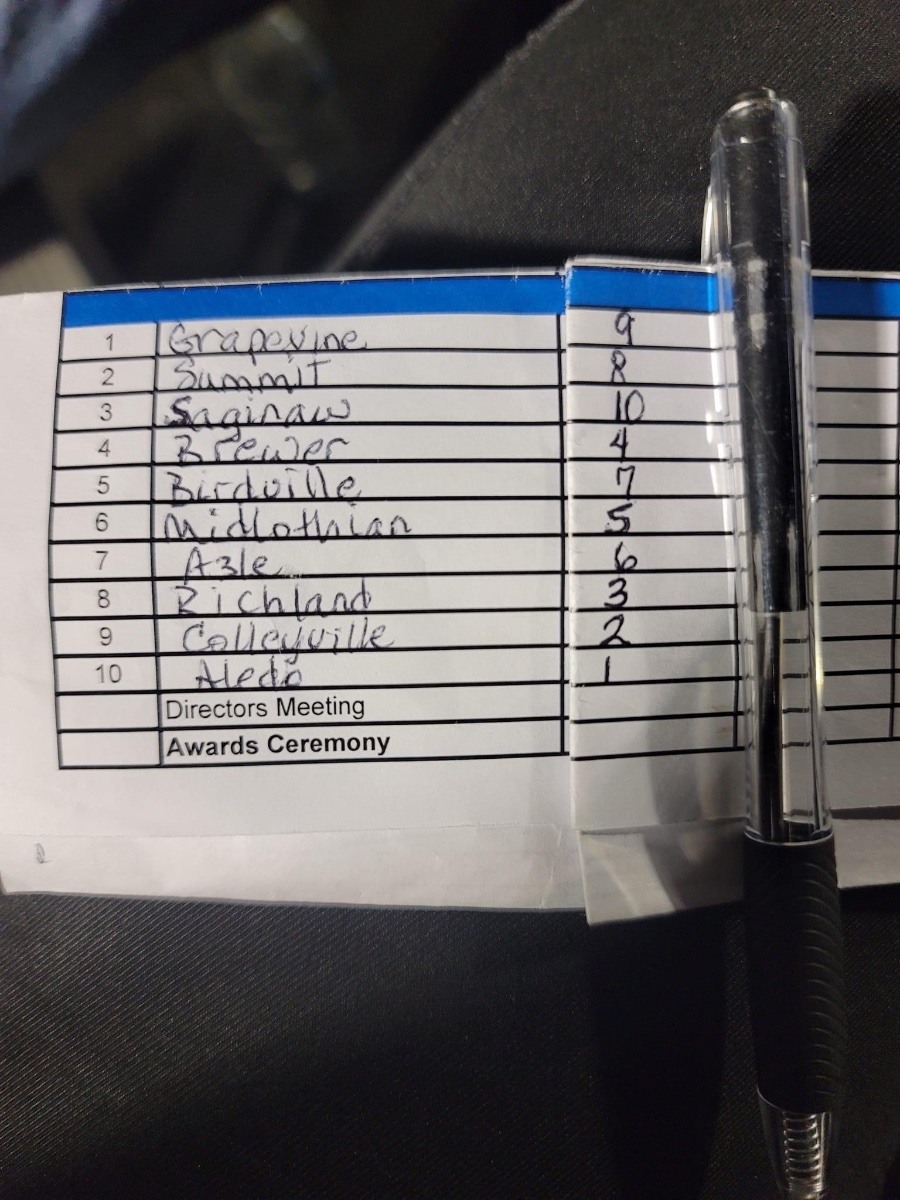 1 Grapevine 9
2 Summit 8
3 Saginaw 10
4 Brewer 4
5 Birdville 7
6 Midlothian 5
7 Azle 6
8 Richland 3
9 Colleyville 2
10 Aledo 1
Directors Meeting
Awards Ceremony